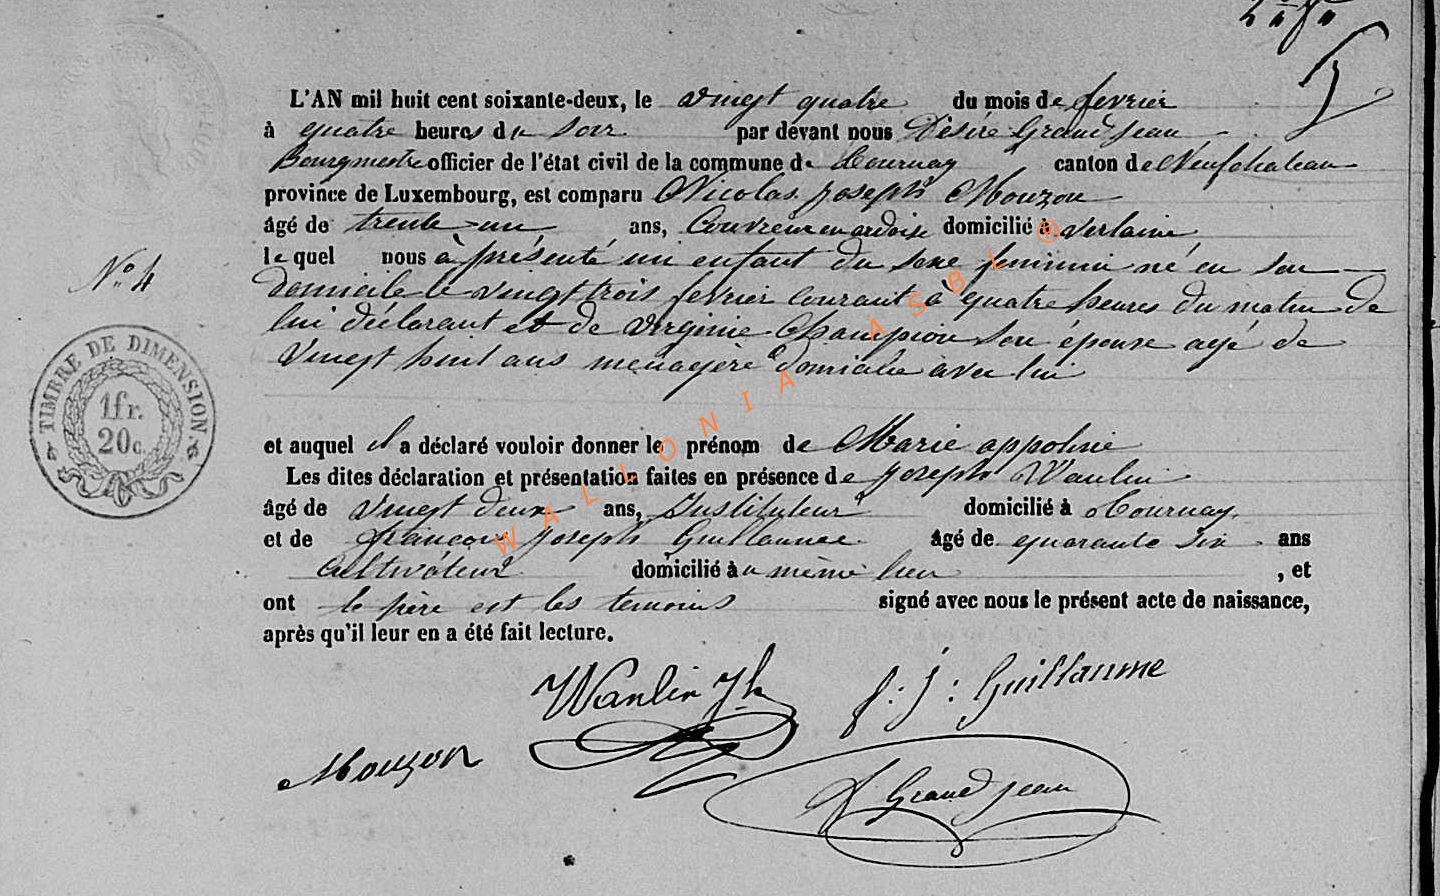 L'AN mil huit cent soixante-deux, le vingt quatre du mois de fevrier
à quatre heures du soir par devant nous Désiré Grandjean
Bourgmestre officier de l'état civil de la commune de Tournay canton de Neufchateau
province de Luxembourg, est comparu Nicolas Joseph Mouzon
âgé de trente un ans, Couvreur en ardoise domicilié à Verlaine
le quel nous à présenté un enfant du sexe feminin né en son
N° 4
domicile le vingt trois fevrier courant à quatre heures du matin de
lui déclarant et de Virginie Champion son épouse agé de
Vingt huit ans menagère domicilie avec lui
TIMBRE DE DIMENSION
1fr.
20c.
et auquel il a déclaré vouloir donner le prénom de Marie appoline
Les dites déclaration et présentation faites en présence de Joseph Wanlin
âgé de Vingt deux ans, Instituteur domicilié à Tournay
et de francois Joseph Guillaume âgé de quarante six ans
Cultivateur domicilié au même lieu , et
ont le père est les temoins signé avec nous le présent acte de naissance,
après qu'il leur en a été fait lecture.
Wanlin Jh f: J: Guillaume
Mouzon
D Grandjean
WALLONIA ASBL ®